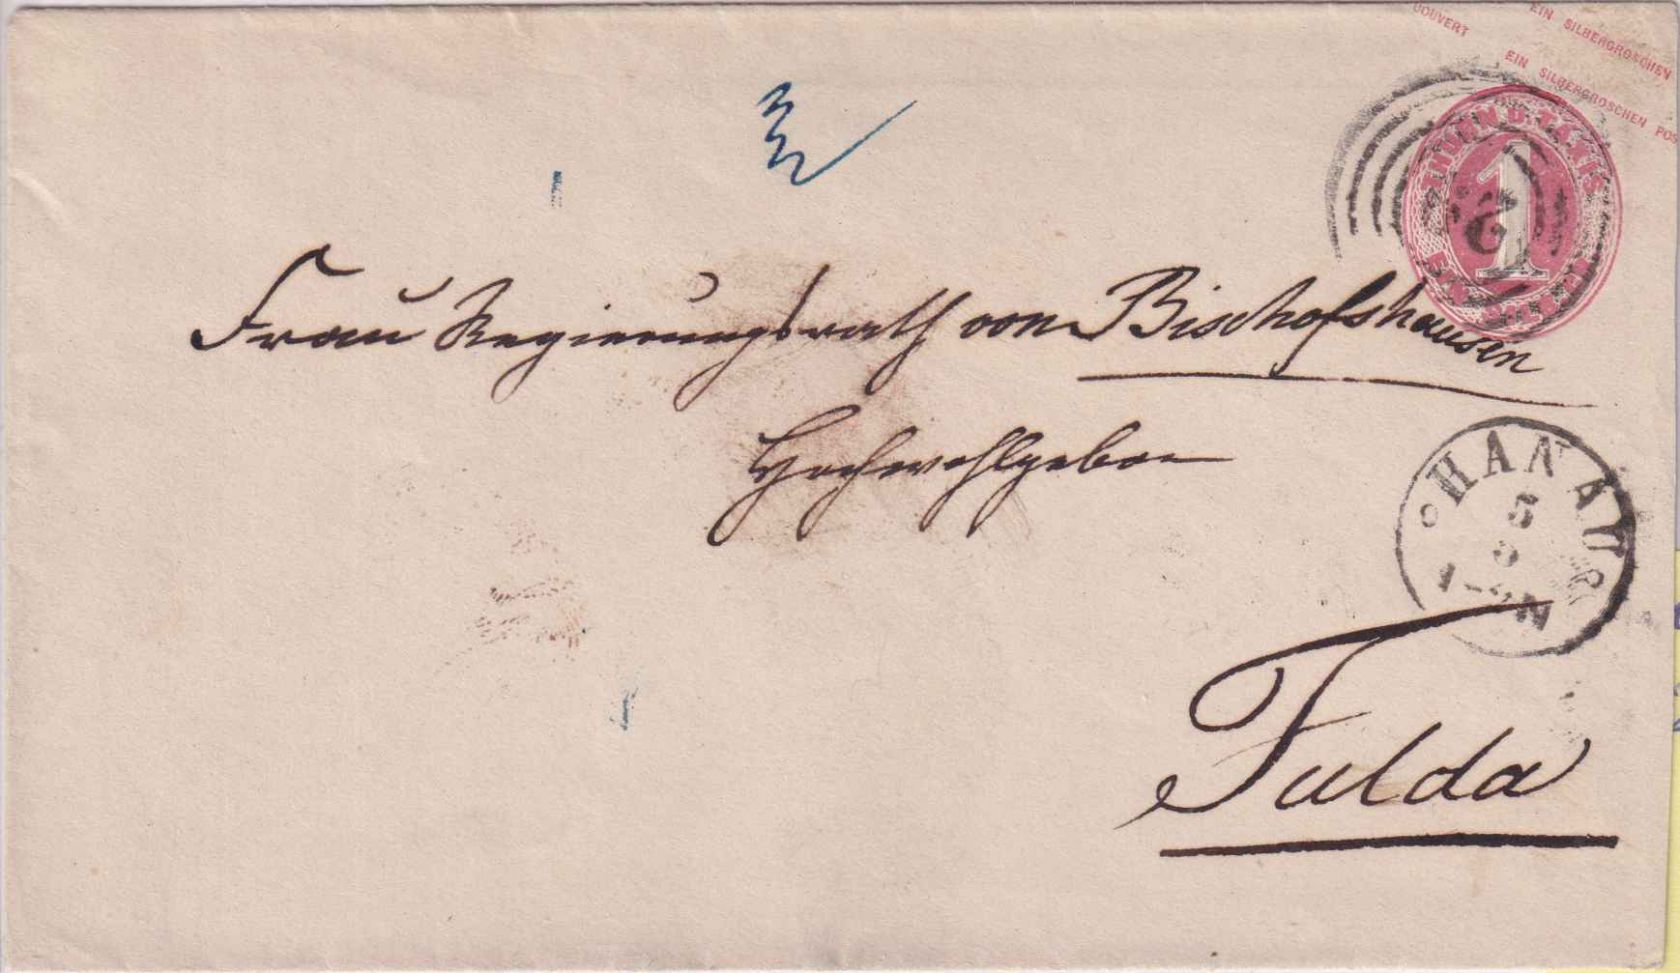 COUVERT
EIN SILBERGROSCHEN
EIN SILBERGROSCHEN POS
1
Frau Regierungsrath von Bischofshausen
Hochwohlgeboren
HANAU
5
1-2 N
Fulda